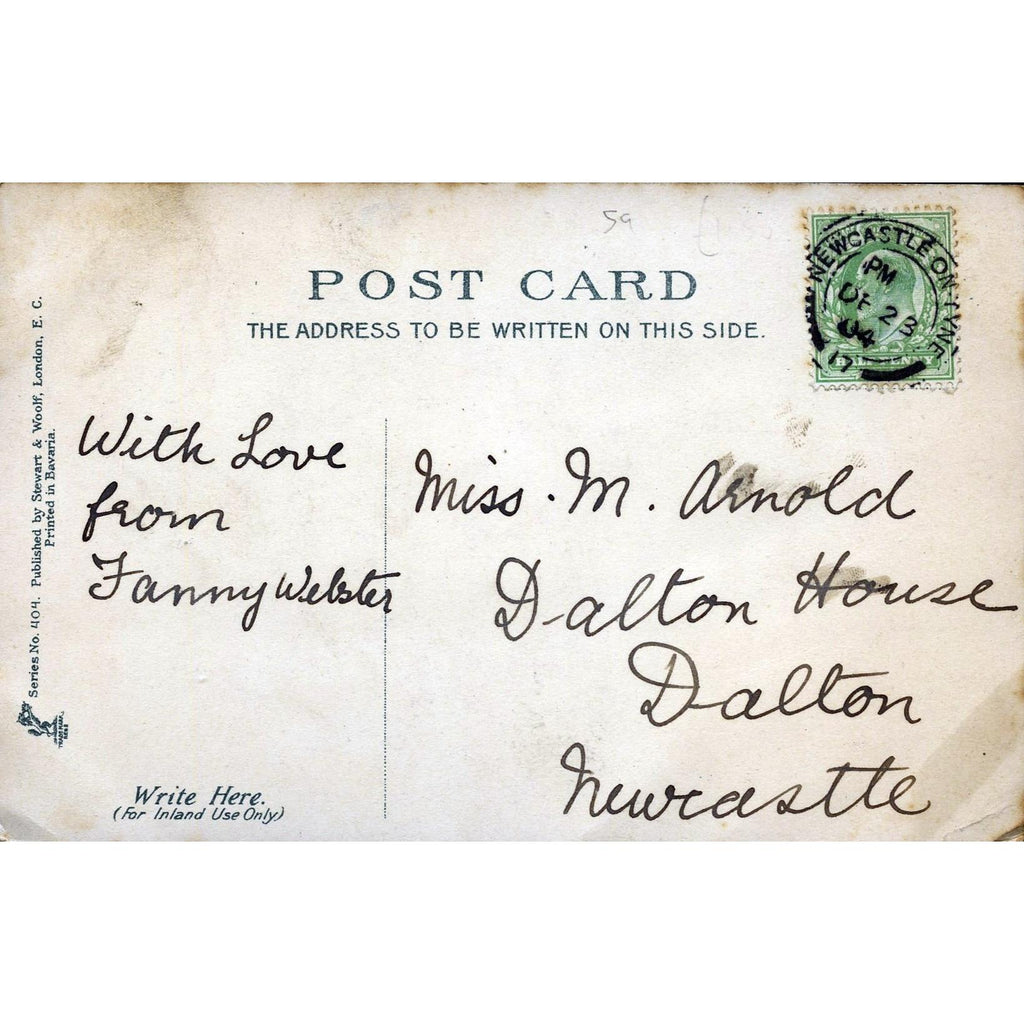 59
POST CARD
THE ADDRESS TO BE WRITTEN ON THIS SIDE.
NEWCASTLE ON TYNE
PM
DE 23
04
17
HALFPENNY
With Love
from
Fanny Webster
Miss. M. Arnold
Dalton House
Dalton
Newcastle
Write Here.
(For Inland Use Only)
Series No. 404. Published by Stewart & Woolf, London, E. C.
Printed in Bavaria.
TRADE MARK